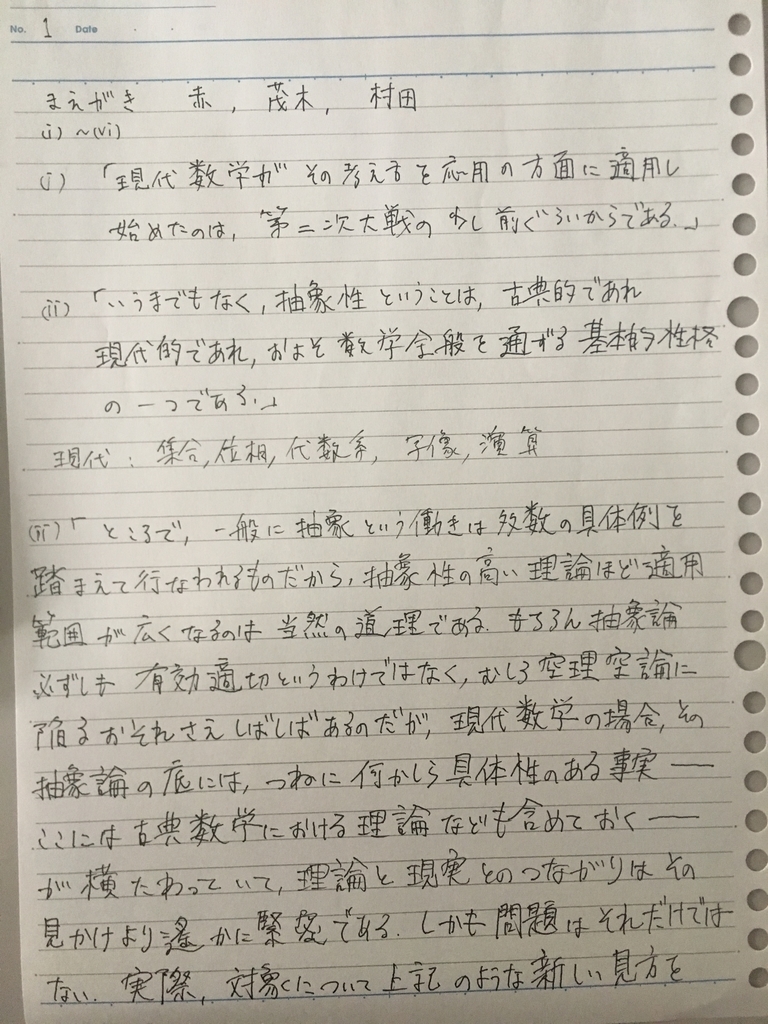 No. 1 Date
まえがき 赤, 茂木, 村田
(i) ~(vi)
(i) 「現代数学がその考え方を応用の方面に適用し
始めたのは, 第二次大戦の少し前ぐらいからである.」
(ii) 「いうまでもなく, 抽象性ということは, 古典的であれ
現代的であれ, およそ数学全般を通ずる基本的性格
の一つである.」
現代: 集合, 位相, 代数系, 写像, 演算
(iii) 「ところで, 一般に抽象という働きは多数の具体例を
踏まえて行なわれるものだから, 抽象性の高い理論ほど適用
範囲が広くなるのは当然の道理である. もちろん抽象論
必ずしも有効適切というわけではなく, むしろ空理空論に
陥るおそれさえしばしばあるのだが, 現代数学の場合, その
抽象論の底には, つねに何かしら具体性のある事実――
ここには古典数学における理論なども含めておく――
が横たわっていて, 理論と現実とのつながりはその
見かけより遥かに緊密である. しかも問題はそれだけでは
ない. 実際, 対象について上記のような新しい見方を